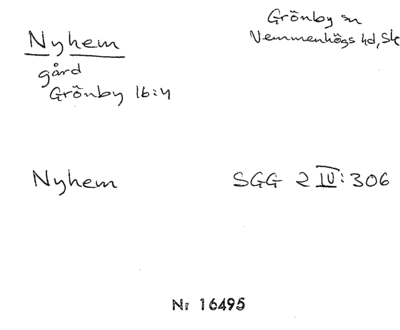 Nyhem
gård
Grönby 16:4
Grönby sn
Vemmenhögs hd, Sk
Nyhem
SGG 2 IV: 306
Nr 16495